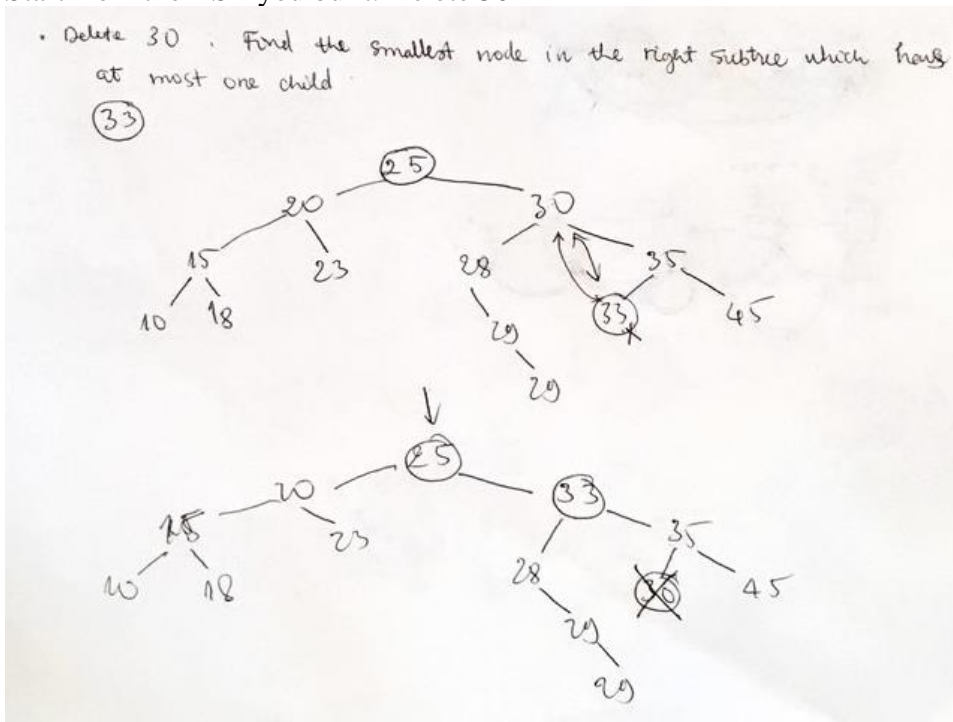 . Delete 30 . Find the smallest node in the right subtree which
at most one child
33
25
20 30
15 23 28 35
10 18 29 33 45
29
25
20 33
15 23 35
10 18 28 30 45
29
29